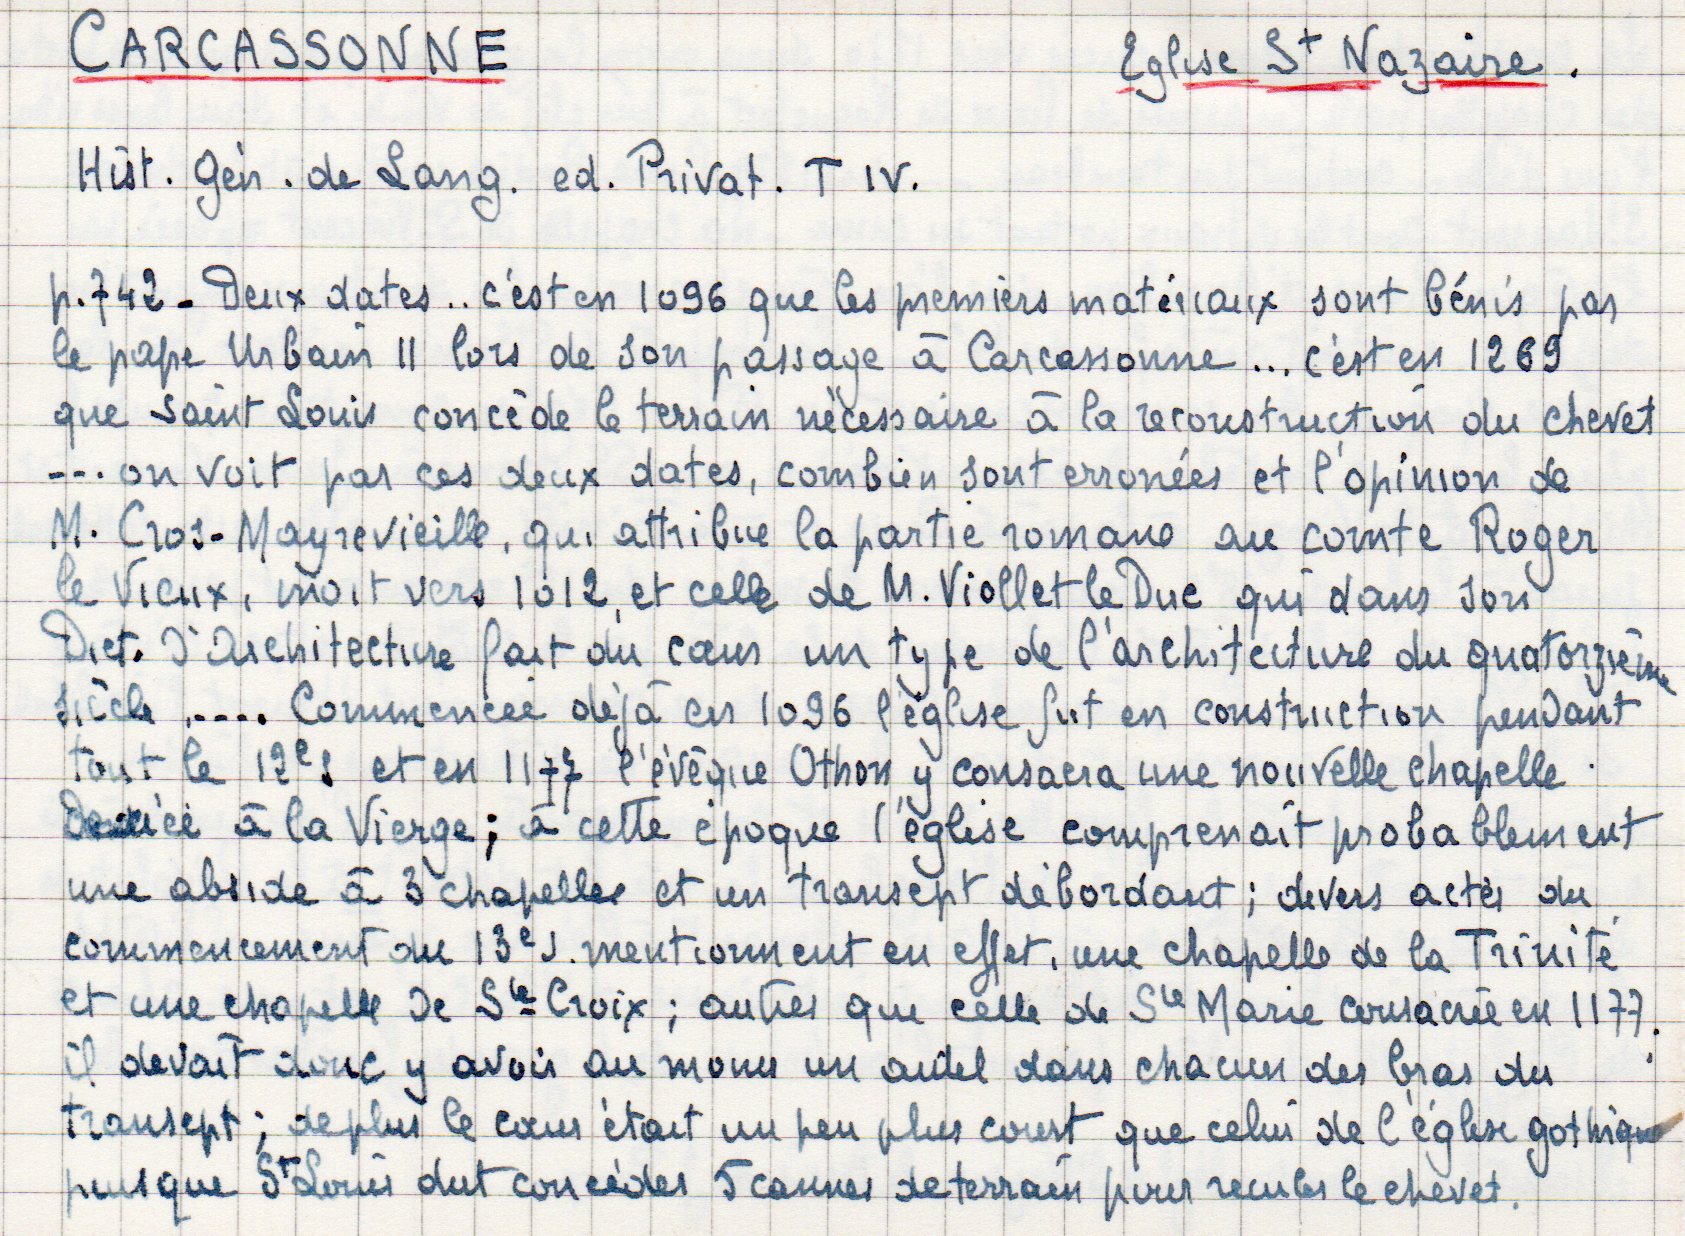 CARCASSONNE Eglise St Nazaire.
Hist. Gén. de Lang. ed. Privat. T IV.
p.742 - Deux dates.. c'est en 1096 que les premiers matériaux sont bénis par
le pape Urbain II lors de son passage à Carcassonne ... c'est en 1269
que saint Louis concède le terrain nécessaire à la reconstruction du chevet
--- on voit par ces deux dates, combien sont erronées et l'opinion de
M. Cros-Mayrevieille, qui attribue la partie romane au comte Roger
le Vieux, mort vers 1012, et celle de M. Viollet le Duc qui dans son
Dict. d'Architecture fait du cœur un type de l'architecture du quatorzième
siècle ,.... Commencée déjà en 1096 l'église fut en construction pendant
tout le 12e s et en 1177 l'évêque Othon y consacra une nouvelle chapelle.
à la Vierge; à cette époque l'église comprenait probablement
une abside à 3 chapelles et un transept débordant; divers actes du
commencement du 13e s. mentionnent en effet, une chapelle de la Trinité
et une chapelle de Ste Croix; autres que celle de Ste Marie consacrée en 1177.
il devait donc y avoir au moins un autel dans chacun des bras du
transept; de plus le cœur était un peu plus court que celui de l'église gothique
puisque St Louis dut concéder 5 cannes de terrain pour reculer le chevet.